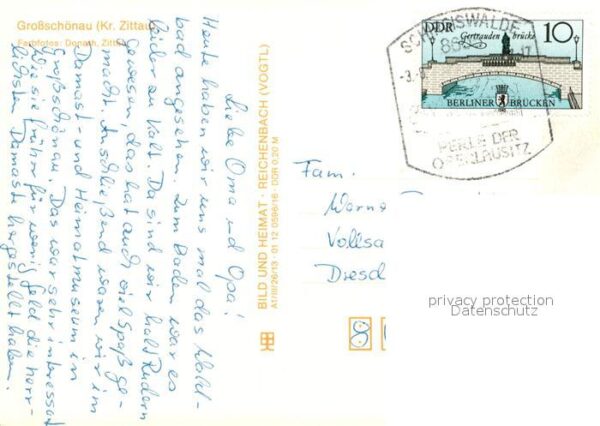 Großschönau (Kr. Zittau)
Farbfotos: Donath, Zittau
Liebe Oma und Opa!
Heute haben wir uns mal das Wald-
bad angesehen. Zum Baden war es
leider zu kalt. Da sind wir halt Rudern
gewesen, das hat auch viel Spaß ge-
macht. Anschließend waren wir im
Damast- und Heimatmuseum in
Großschönau. Das war sehr interessant
wie sie früher für wenig Geld die herr-
lichsten Damaste hergestellt haben.
BILD UND HEIMAT · REICHENBACH (VOGTL)
A1/III/26/13 · 01 12 0596/16 · DDR 0,20 M
SCHIRGISWALDE
PERLE DER
OBERLAUSITZ
DDR
Gertraudenbrücke
10
BERLINER BRÜCKEN
Fam.
Werne
Vollsa
Dresd
8
privacy protection
Datenschutz